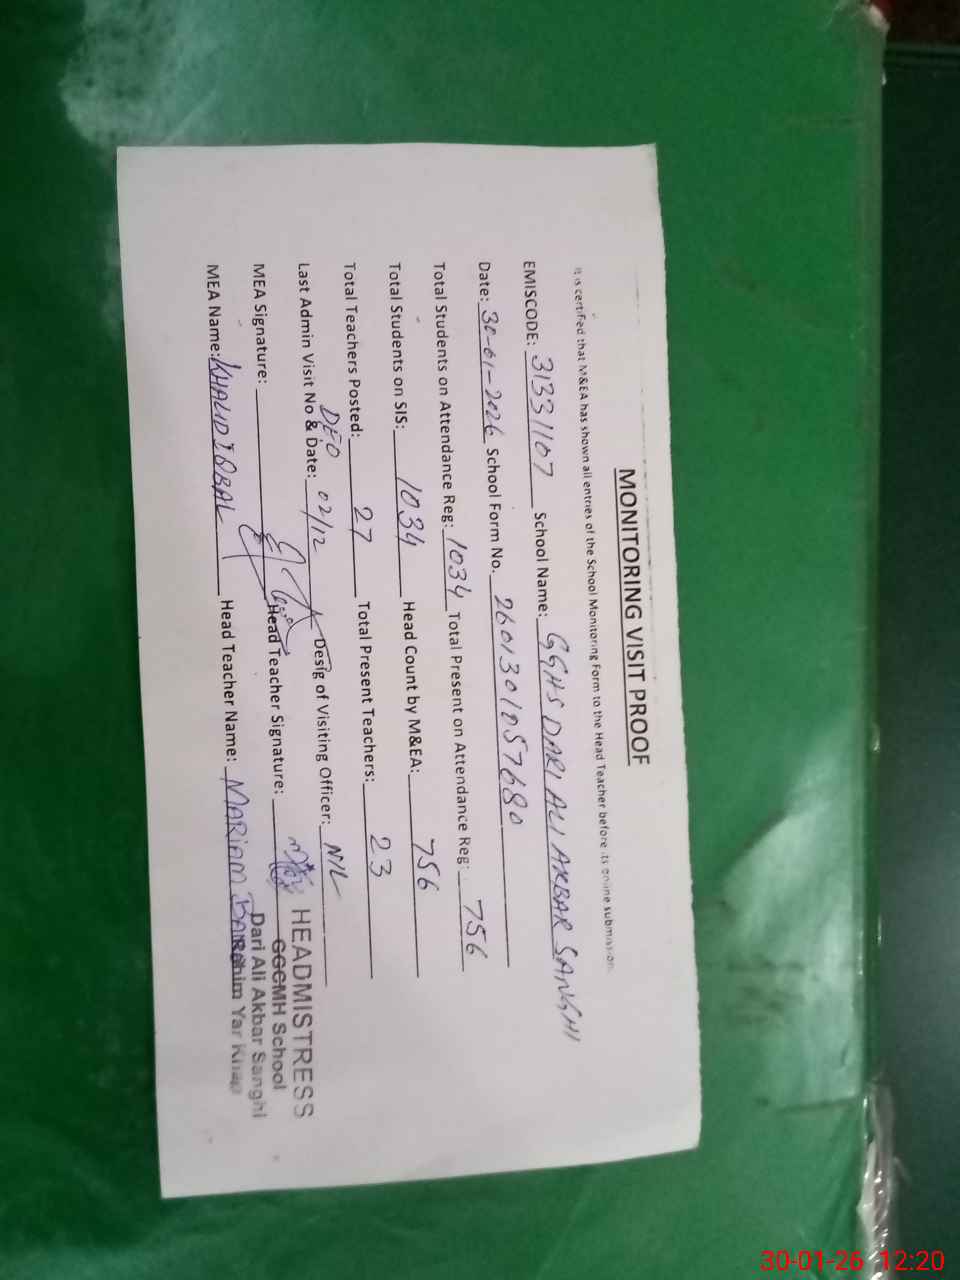 MONITORING VISIT PROOF
It is certified that M&EA has shown all entries of the School Monitoring Form to the Head Teacher before its online submission.
EMISCODE: 31331107 School Name: GGHS DARI ALI AKBAR SANGHI
Date: 30-01-2026 School Form No. 2601301057680
Total Students on Attendance Reg: 1034 Total Present on Attendance Reg: 756
Total Students on SIS: 1034 Head Count by M&EA: 756
Total Teachers Posted: 27 Total Present Teachers: 23
DEO
Last Admin Visit No & Date: 02/12 Desig of Visiting Officer: NIL
MEA Signature: Head Teacher Signature:
MEA Name: KHALID IQBAL Head Teacher Name: MARIAM
HEADMISTRESS
School
Dari Ali Akbar Sanghi
Rahim Yar Khan
30-01-26 12:20